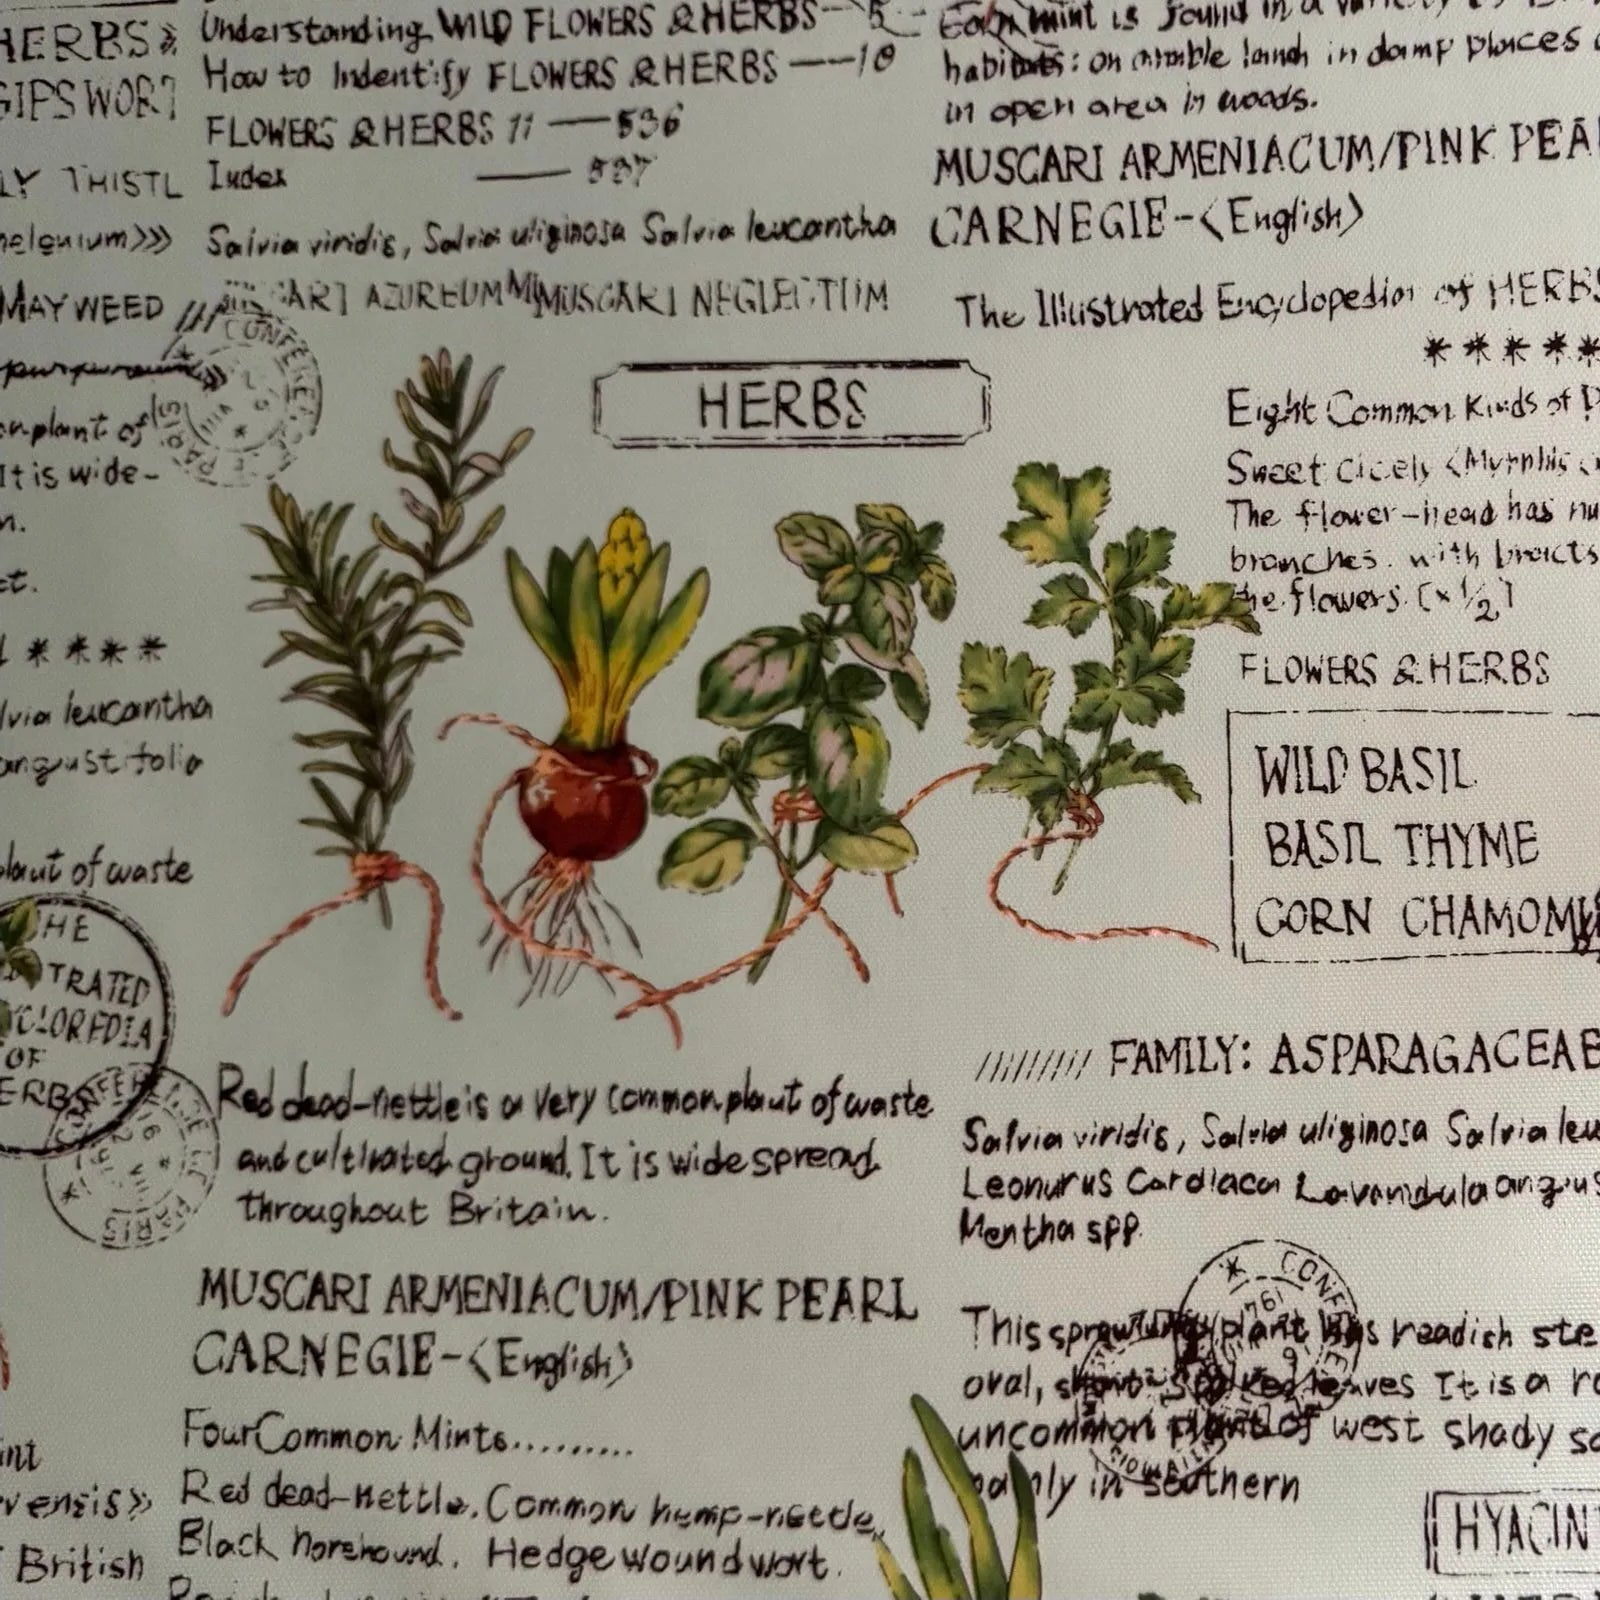 HERBS»
GIPSWORT
LY THISTL
MAY WEED
onplant of
It is wide-
n.
et.
****
lvia leucantha
angustifolia
plaut of waste
HE
TRATED
OF
ERBS
int
vensis»
British
Understanding WILD FLOWERS & HERBS
How to Indentify FLOWERS & HERBS ——18
FLOWERS & HERBS 11 ——536
Index —— 537
Salvia viridis, Salvia uliginosa Salvia leucantha
AZUREUM MUSCARI NEGLECTUM
CONFE
PARIS
HERBS
Red dead-nettle is a very common plaut of waste
and cultivated ground. It is wide spread
throughout Britain.
MUSCARI ARMENIACUM/PINK PEARL
CARNEGIE-<English>
Four Common Mints..........
Red dead-nettle. Common hemp-nettle
Black horehound. Hedge woundwort.
Corn mint is found in a
habitats: on arable land in damp places
in open area in woods.
MUSCARI ARMENIACUM/PINK PEA
CARNEGIE-<English>
The Illustrated Encyclopedia of HERBS
*****
Eight Common Kinds of
Sweet Cicely <Myrrhis
The flower-head has nu
branches. with bracts
the flowers. [×1/2]
FLOWERS & HERBS
WILD BASIL
BASIL THYME
CORN CHAMOM
///////// FAMILY: ASPARAGACEAE
Salvia viridis, Salvia uliginosa Salvia leu
Leonurus Cardiaca Lavandula angus
Mentha spp.
CONF
This sprawling plant has readish ste
oral, leaves It is a
uncommon plant of west shady
mainly in southern
HYACIN